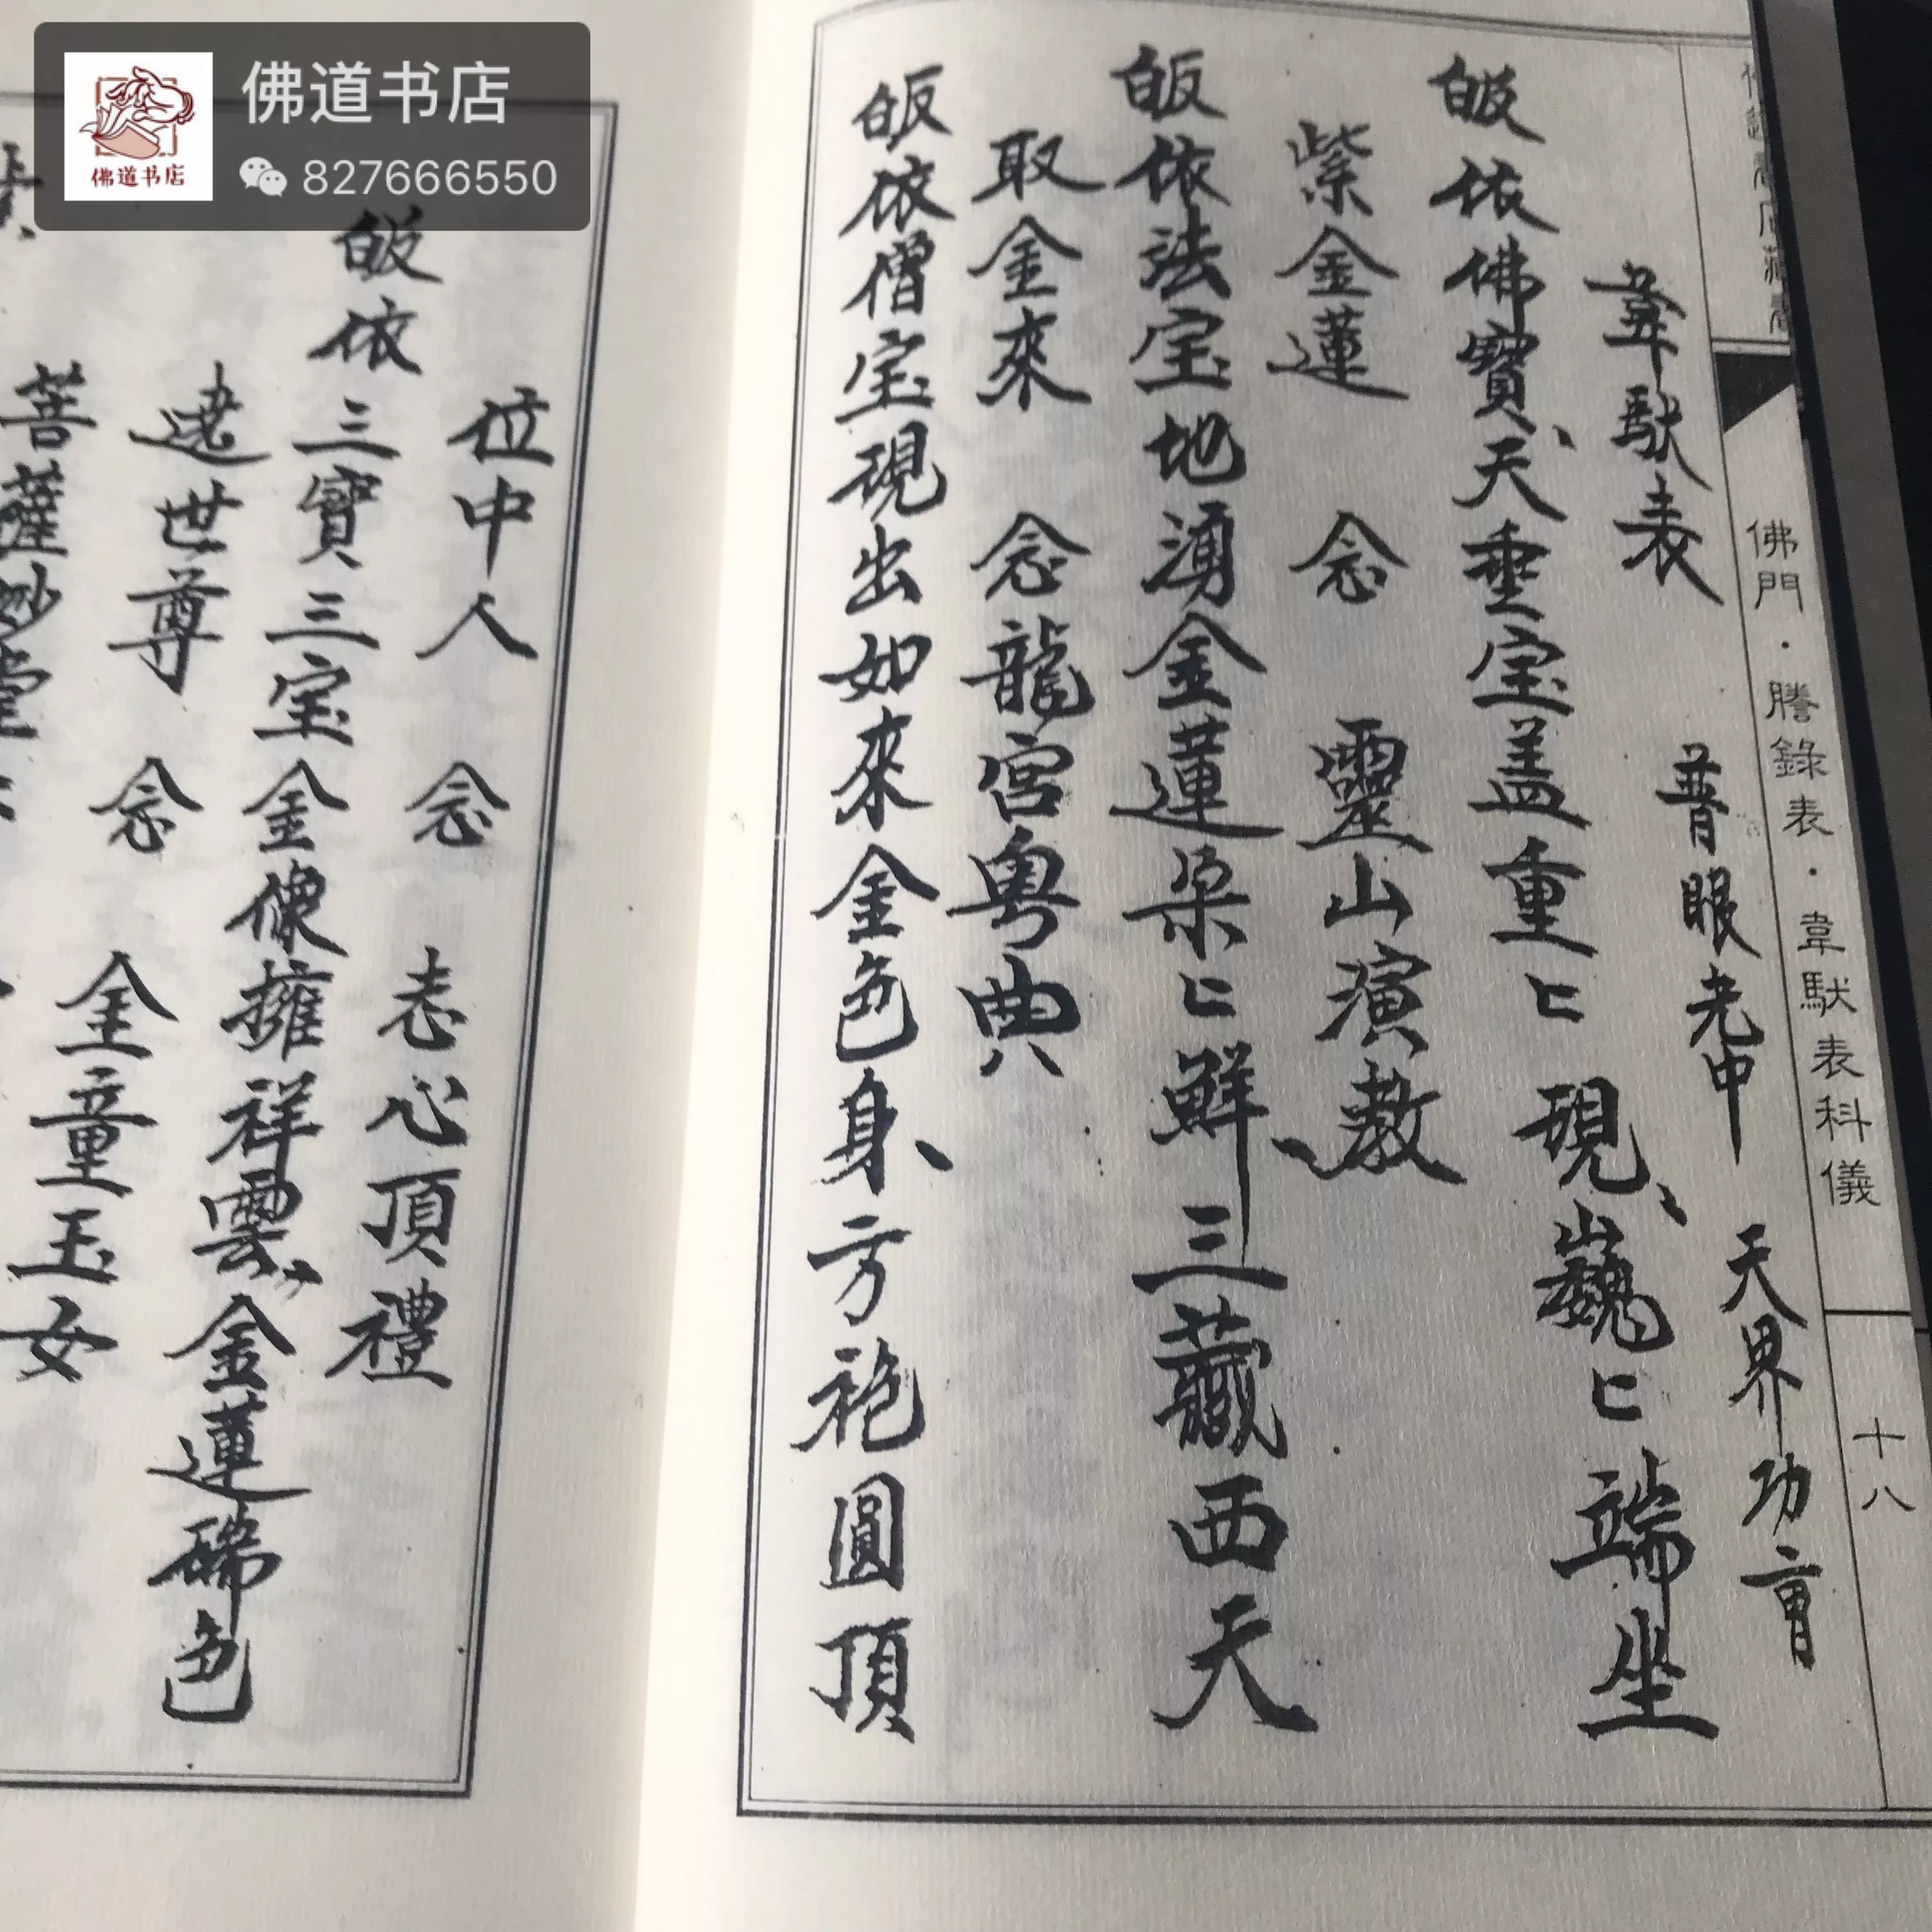 佛道书店
佛道书店
827666550
佛門·謄錄表·韋馱表科儀
十八
韋馱表 普眼老申 天界功曹
皈依佛寶天垂宝盖重〻現巍〻端坐
紫金蓮 念 靈山演教
皈依法宝地湧金蓮朵〻鮮三藏西天
取金來 念龍宮粵典
皈依僧宝現出如來金色身方袍圓頂
位中人 念 志心頂禮
皈依三寶三宝金像擁祥雲金蓮瑞色
遶世尊 念 金童玉女
菩薩妙